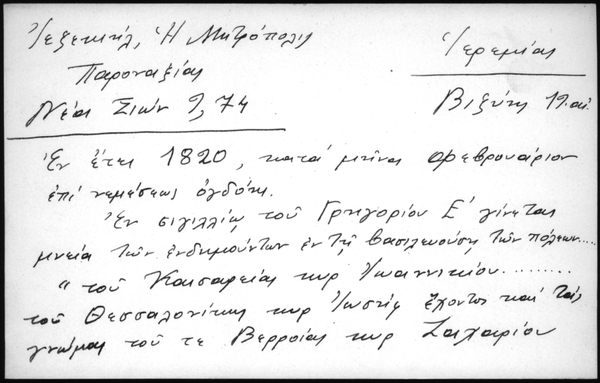 Ἰεζεκιήλ, Ἡ Μητρόπολις
Παροναξίας
Νέα Σιών 9, 74
Ἱερεμίας
Βιζύης 19.αἰ.
Ἐν ἔτει 1820, κατά μῆνα Φεβρουάριον
ἐπί νεμέσεως ὀγδόης.
Ἐν σιγιλλίῳ τοῦ Γρηγορίου Ε' γίνεται
μνεία τῶν ἐνδημούντων ἐν τῇ βασιλευούσῃ τῶν πόλεων.....
"τοῦ Καισαρείας κυρ Ἰωαννικίου.........
τοῦ Θεσσαλονίκης κυρ Ἰωσήφ ἔχοντος καί τάς
γνώμας τοῦ τε Βερροίας κυρ Ζαχαρίου